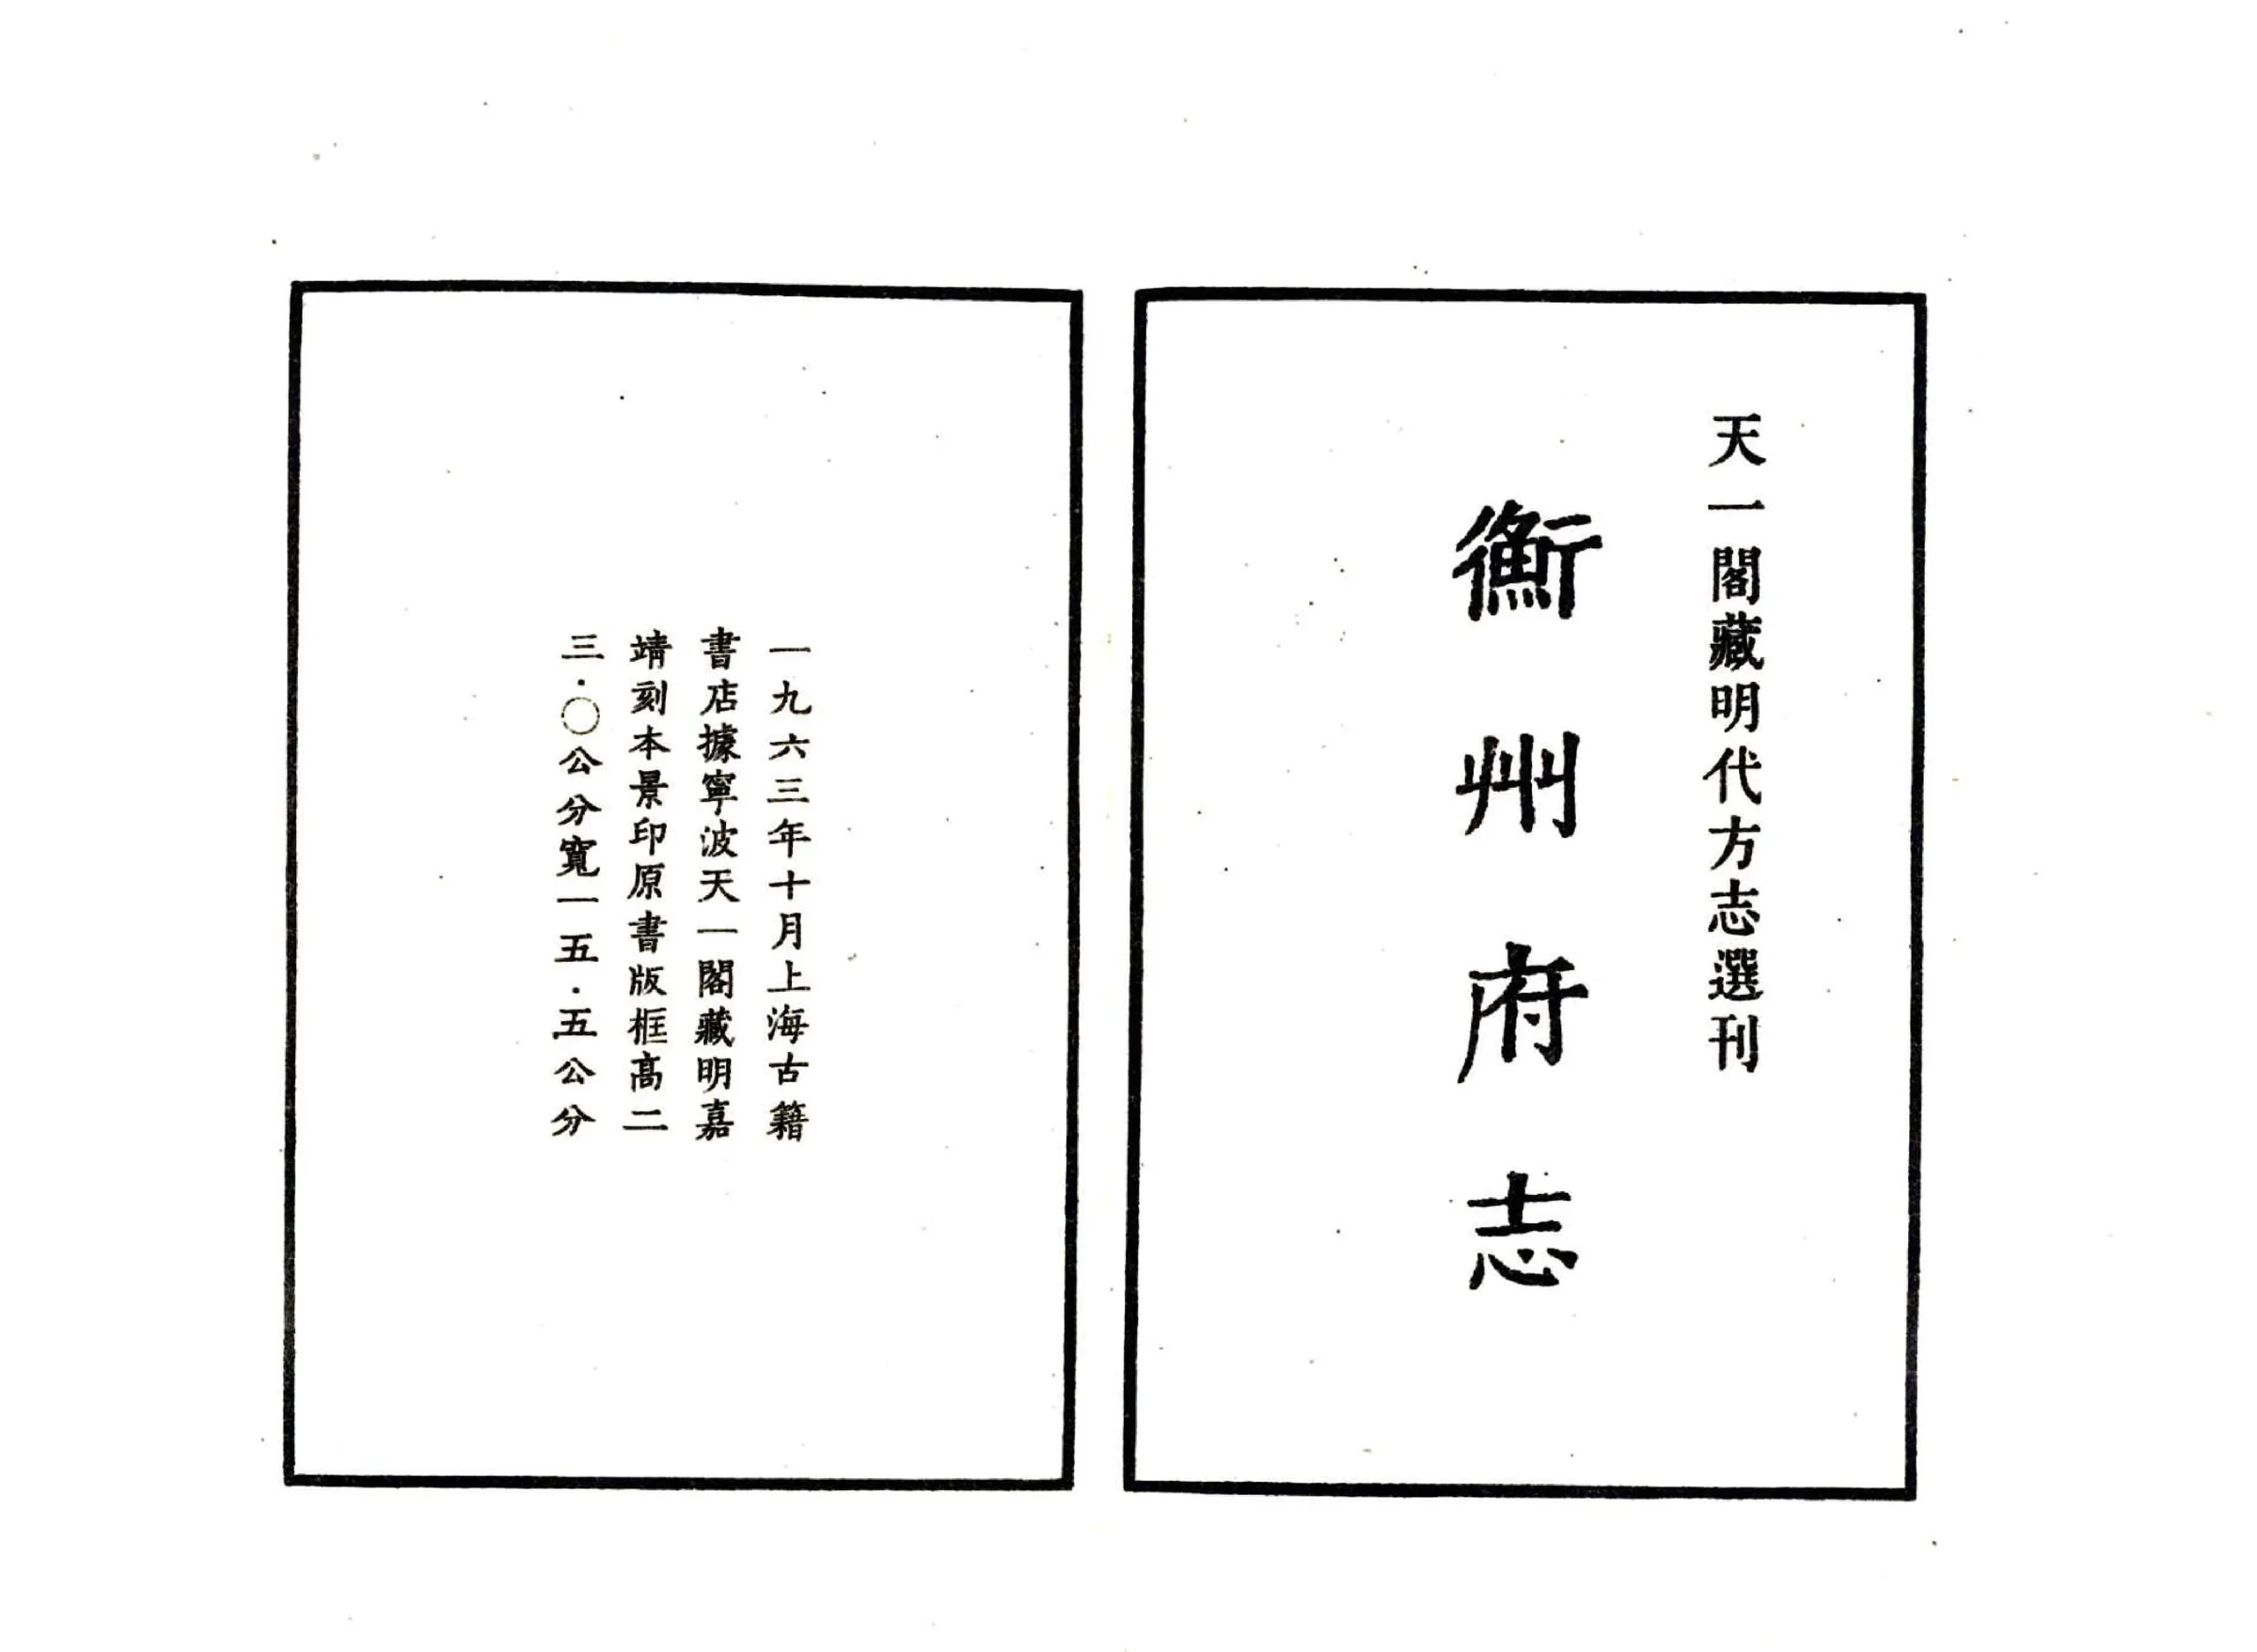 天一閣藏明代方志選刊
衡州府志
一九六三年十月上海古籍
書店據寧波天一閣藏明嘉
靖刻本景印原書版框高二
三·〇公分寬一五·五公分